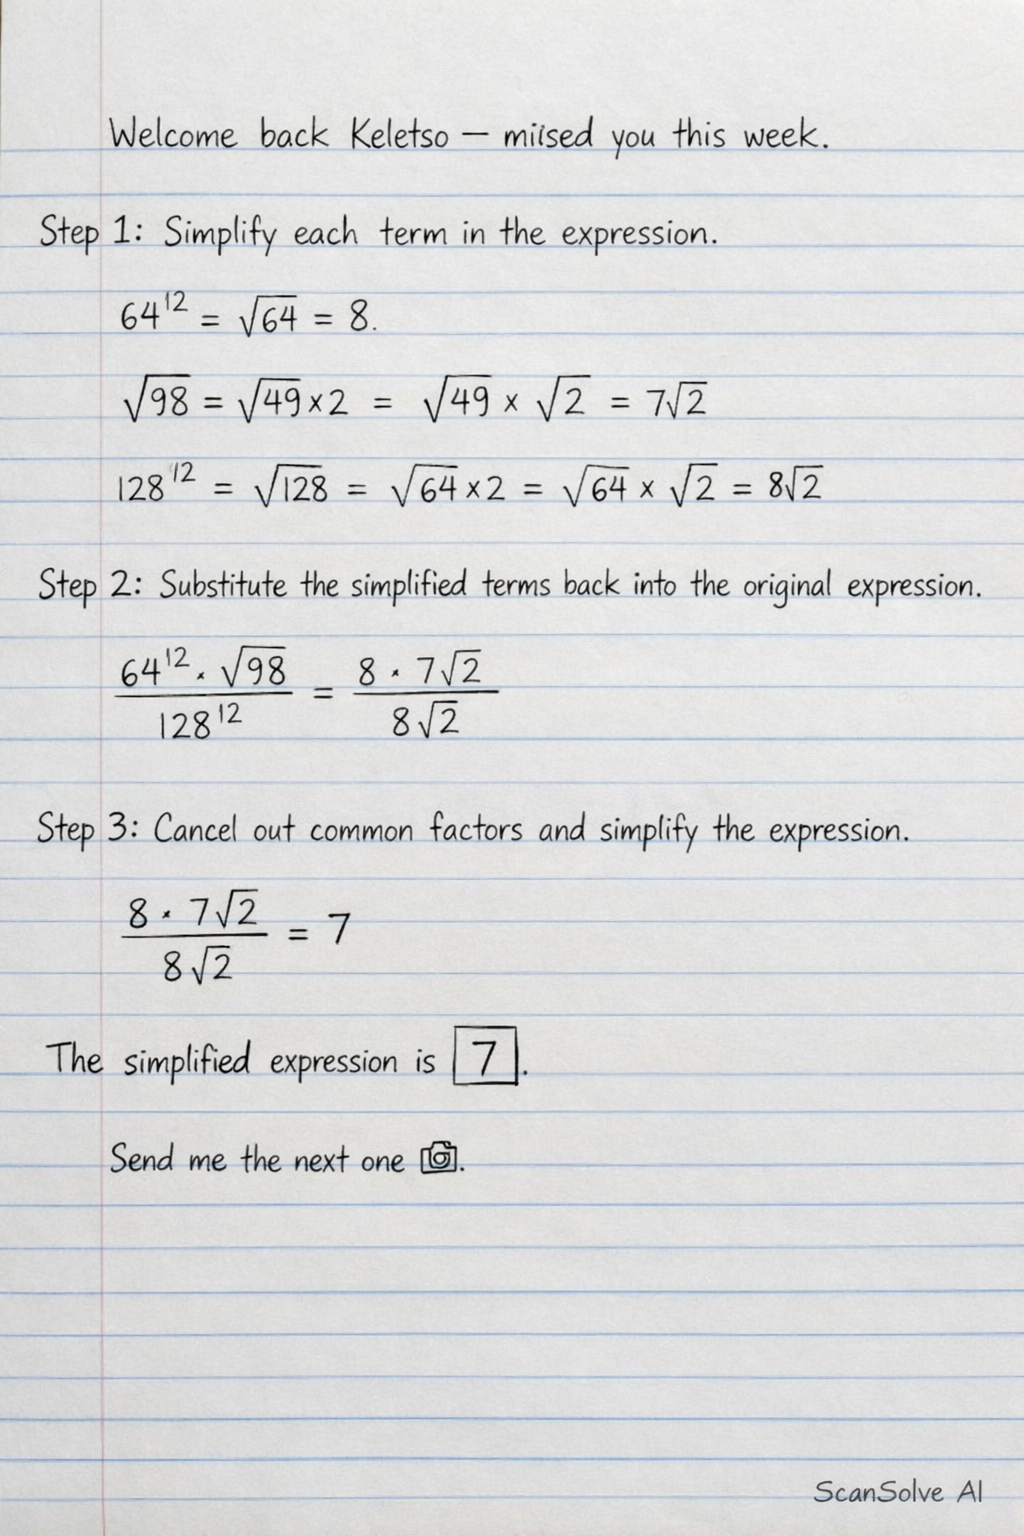 Welcome back Keletso — miised you this week.
Step 1: Simplify each term in the expression.
64¹² = √64 = 8.
√98 = √49×2 = √49 × √2 = 7√2
128¹² = √128 = √64×2 = √64 × √2 = 8√2
Step 2: Substitute the simplified terms back into the original expression.
64¹² · √98 / 128¹² = 8 · 7√2 / 8√2
Step 3: Cancel out common factors and simplify the expression.
8 · 7√2 / 8√2 = 7
The simplified expression is 7.
Send me the next one 📷.
ScanSolve AI